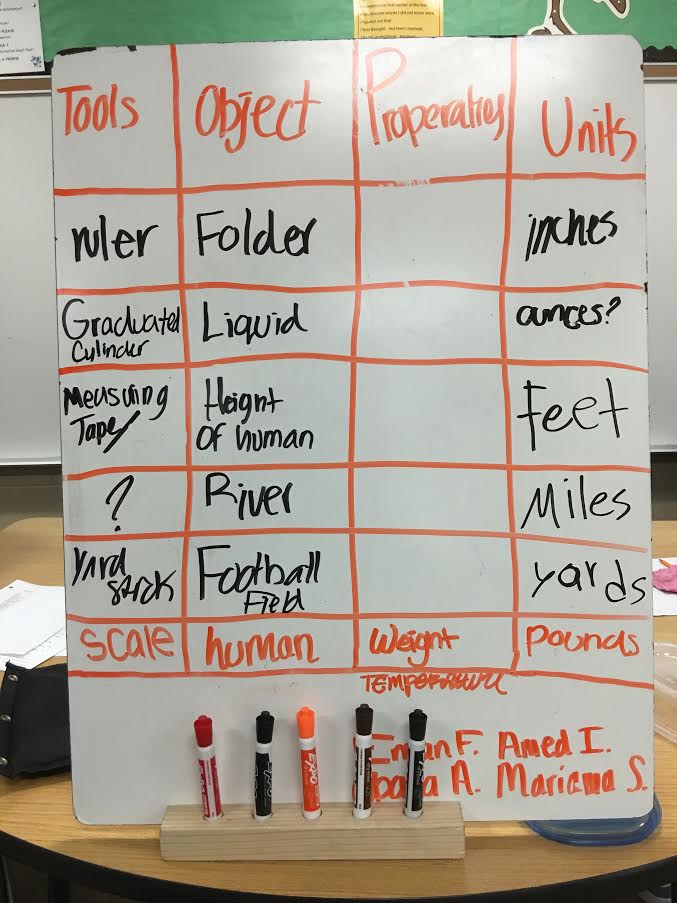 Tools Object Properaties Units
ruler Folder inches
Graduated Liquid ounces?
Cylinder
Measuring Height Feet
Tape Of human
? River Miles
Yard Football yards
stick Field
scale human Weight Pounds
TEMPERATURE
Iman F. Amed I.
A. Mariama S.
EXPO